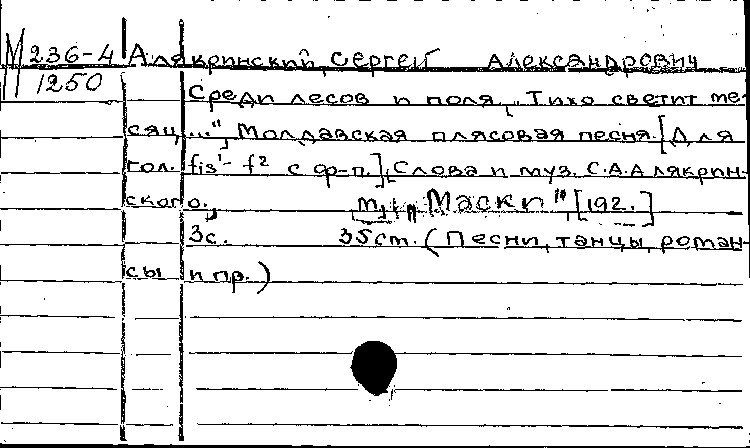 М 236-4 Алякринский, Сергей Александрович
1250
Среди лесов и поля, "Тихо светит ме-
сяц...", Молдавская плясовая песня. [Для
гол. fis¹- f² с ф-п.], Слова и муз. С.А.Алякрин-
ского.,
м., "Маски", [192.]
3с. 35cm. (Песни, танцы, роман-
сы и пр.)